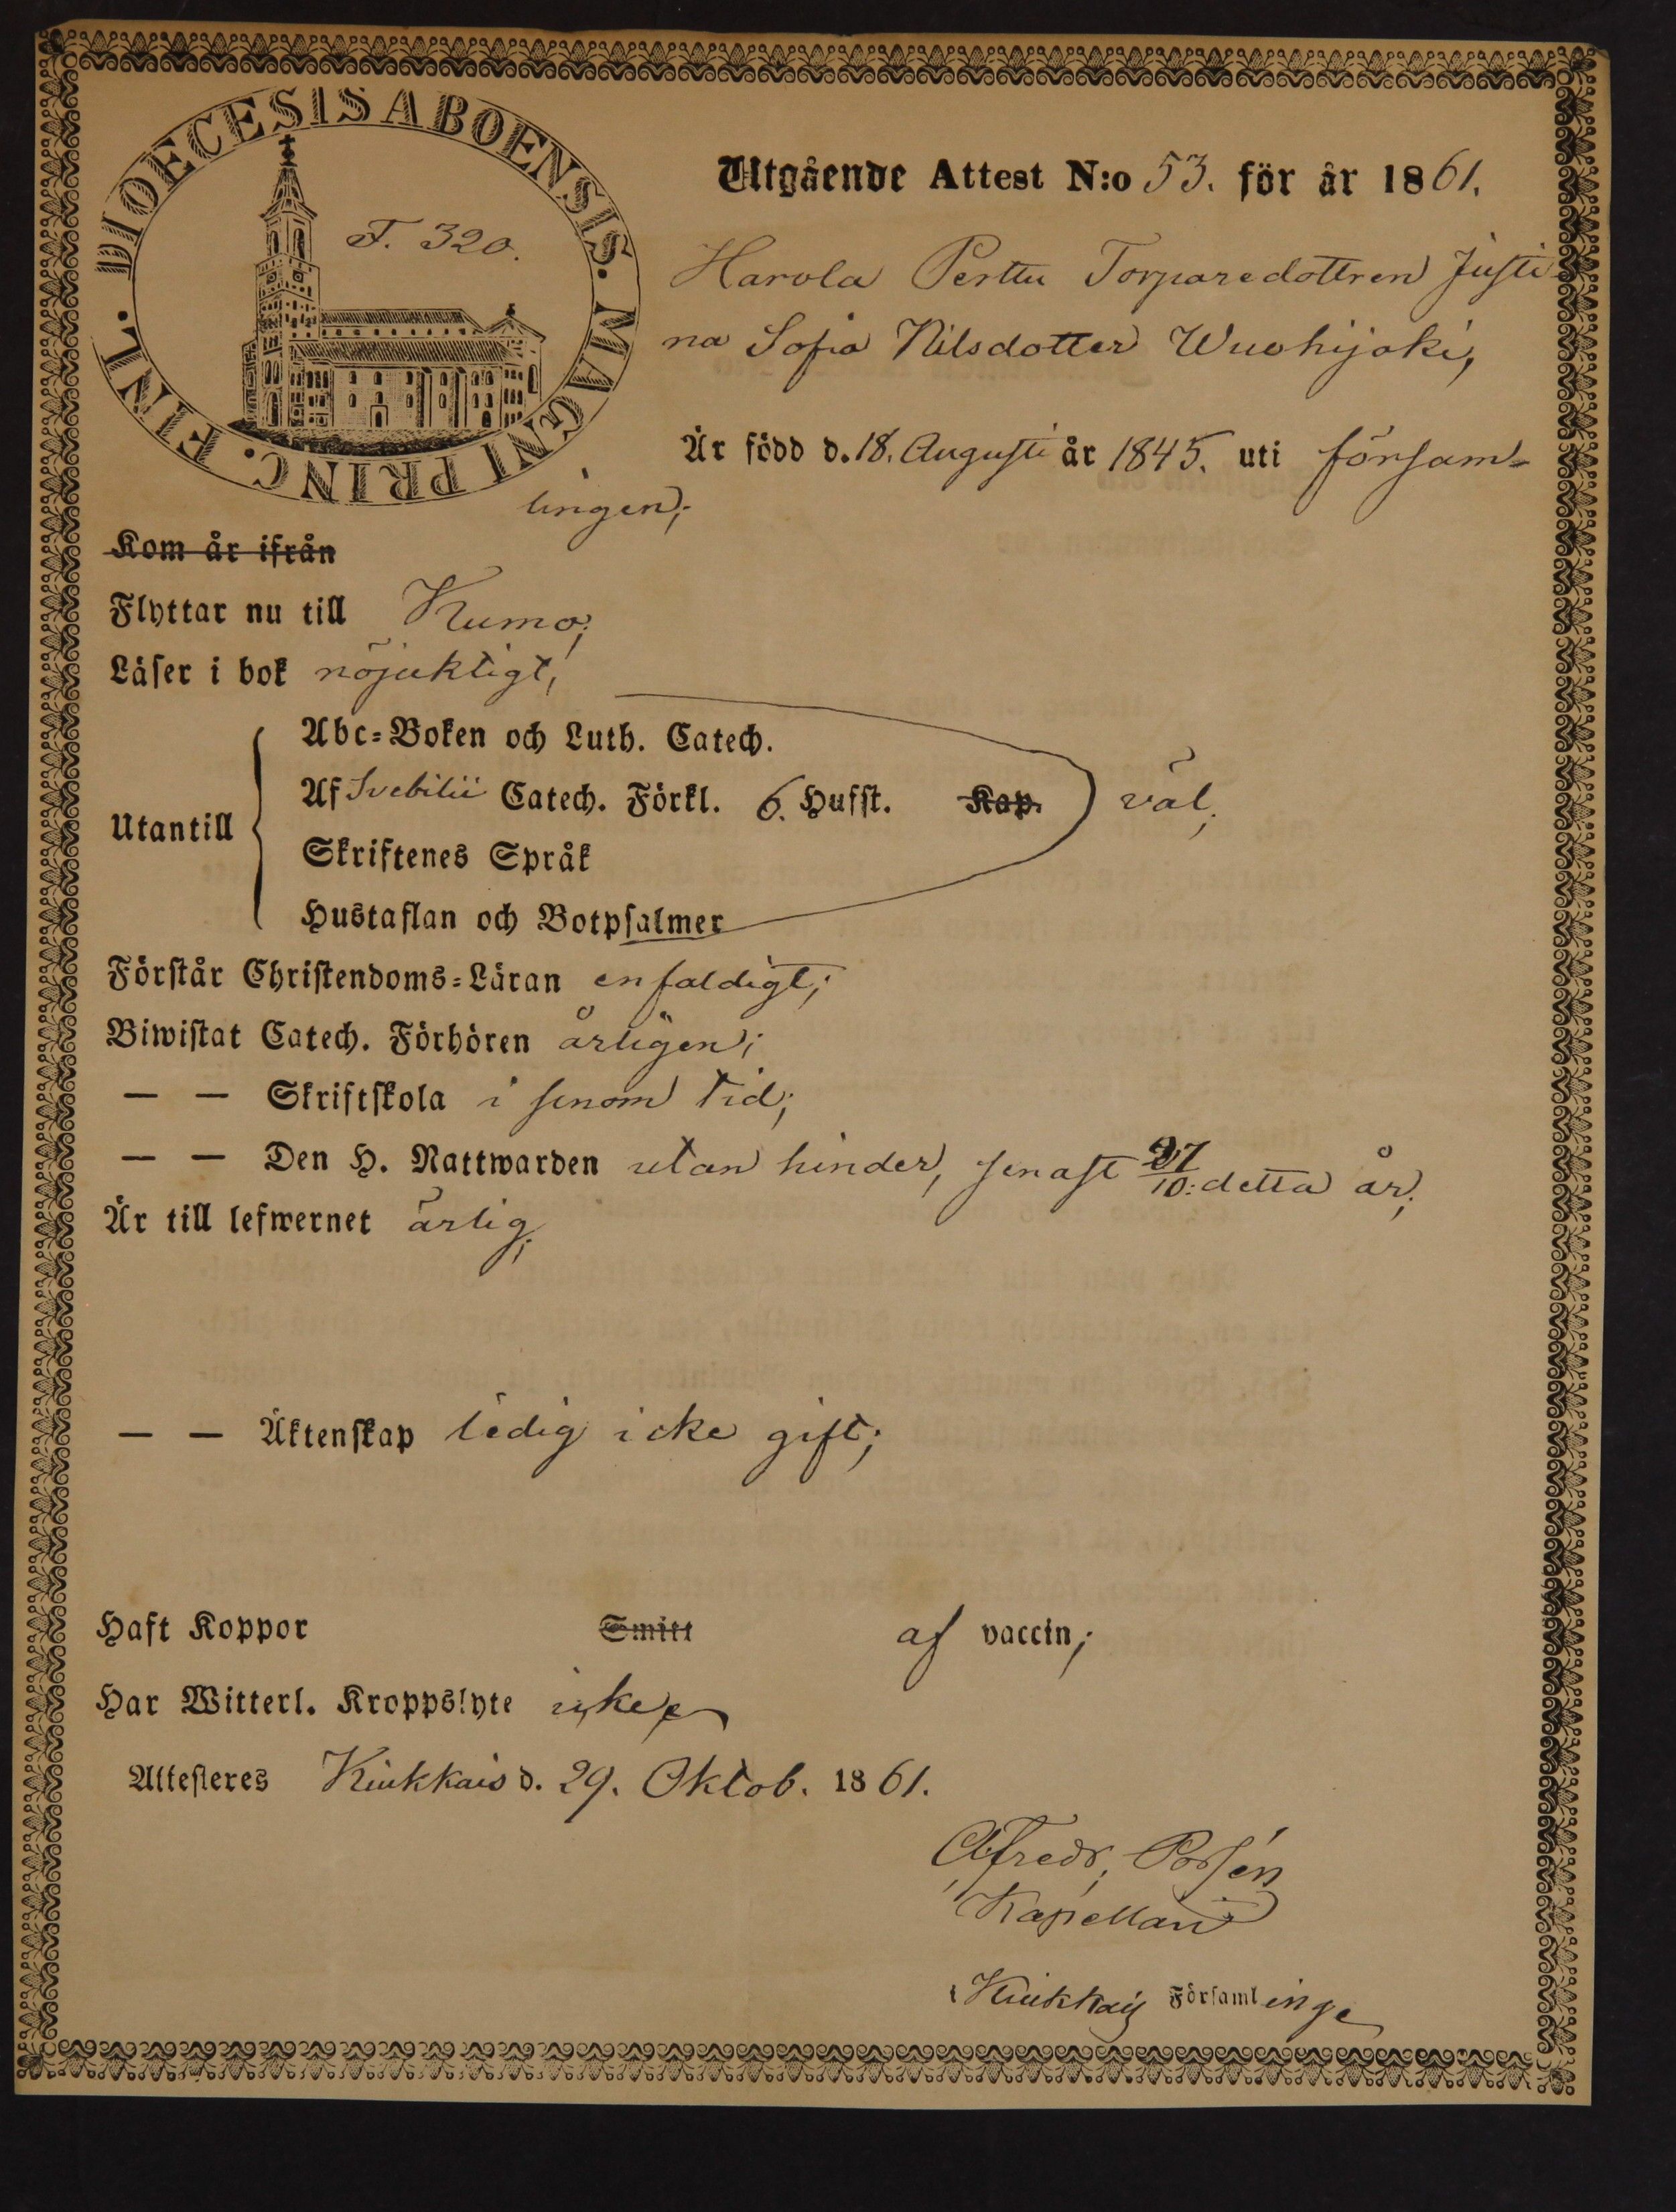 DIOECESIS ABOENSIS. MAGNI PRINC. FINL.
F. 320.
Utgående Attest N:o 53. för år 1861.
Harola Perttu Torparedottren Justi-
na Sofia Nilsdotter Wuohijoki,
Är född d. 18. Augusti år 1845. uti försam-
lingen;
Kom år ifrån
Flyttar nu till Kumo;
Läser i bok nöjaktigt,
Abc-Boken och Luth. Catech.
Utantill
Af Svebilii Catech. Förkl. 6. Hufst. Kap. väl;
Skriftenes Språk
Hustaflan och Botpsalmer
Förstår Christendoms-Läran enfaldigt;
Biwistat Catech. Förhören årligen;
— — Skriftskola i sinom tid;
— — Den H. Nattwarden utan hinder, senast 27/10: detta år;
Är till lefwernet ärlig;
— — Äktenskap ledig icke gift;
Haft Koppor Smitt af vaccin;
Har Witterl. Kroppslyte icke
Attesteres Kiukkais d. 29. Oktob. 1861.
Alfredr,
Kapellan
i Kiukkais Församlinge